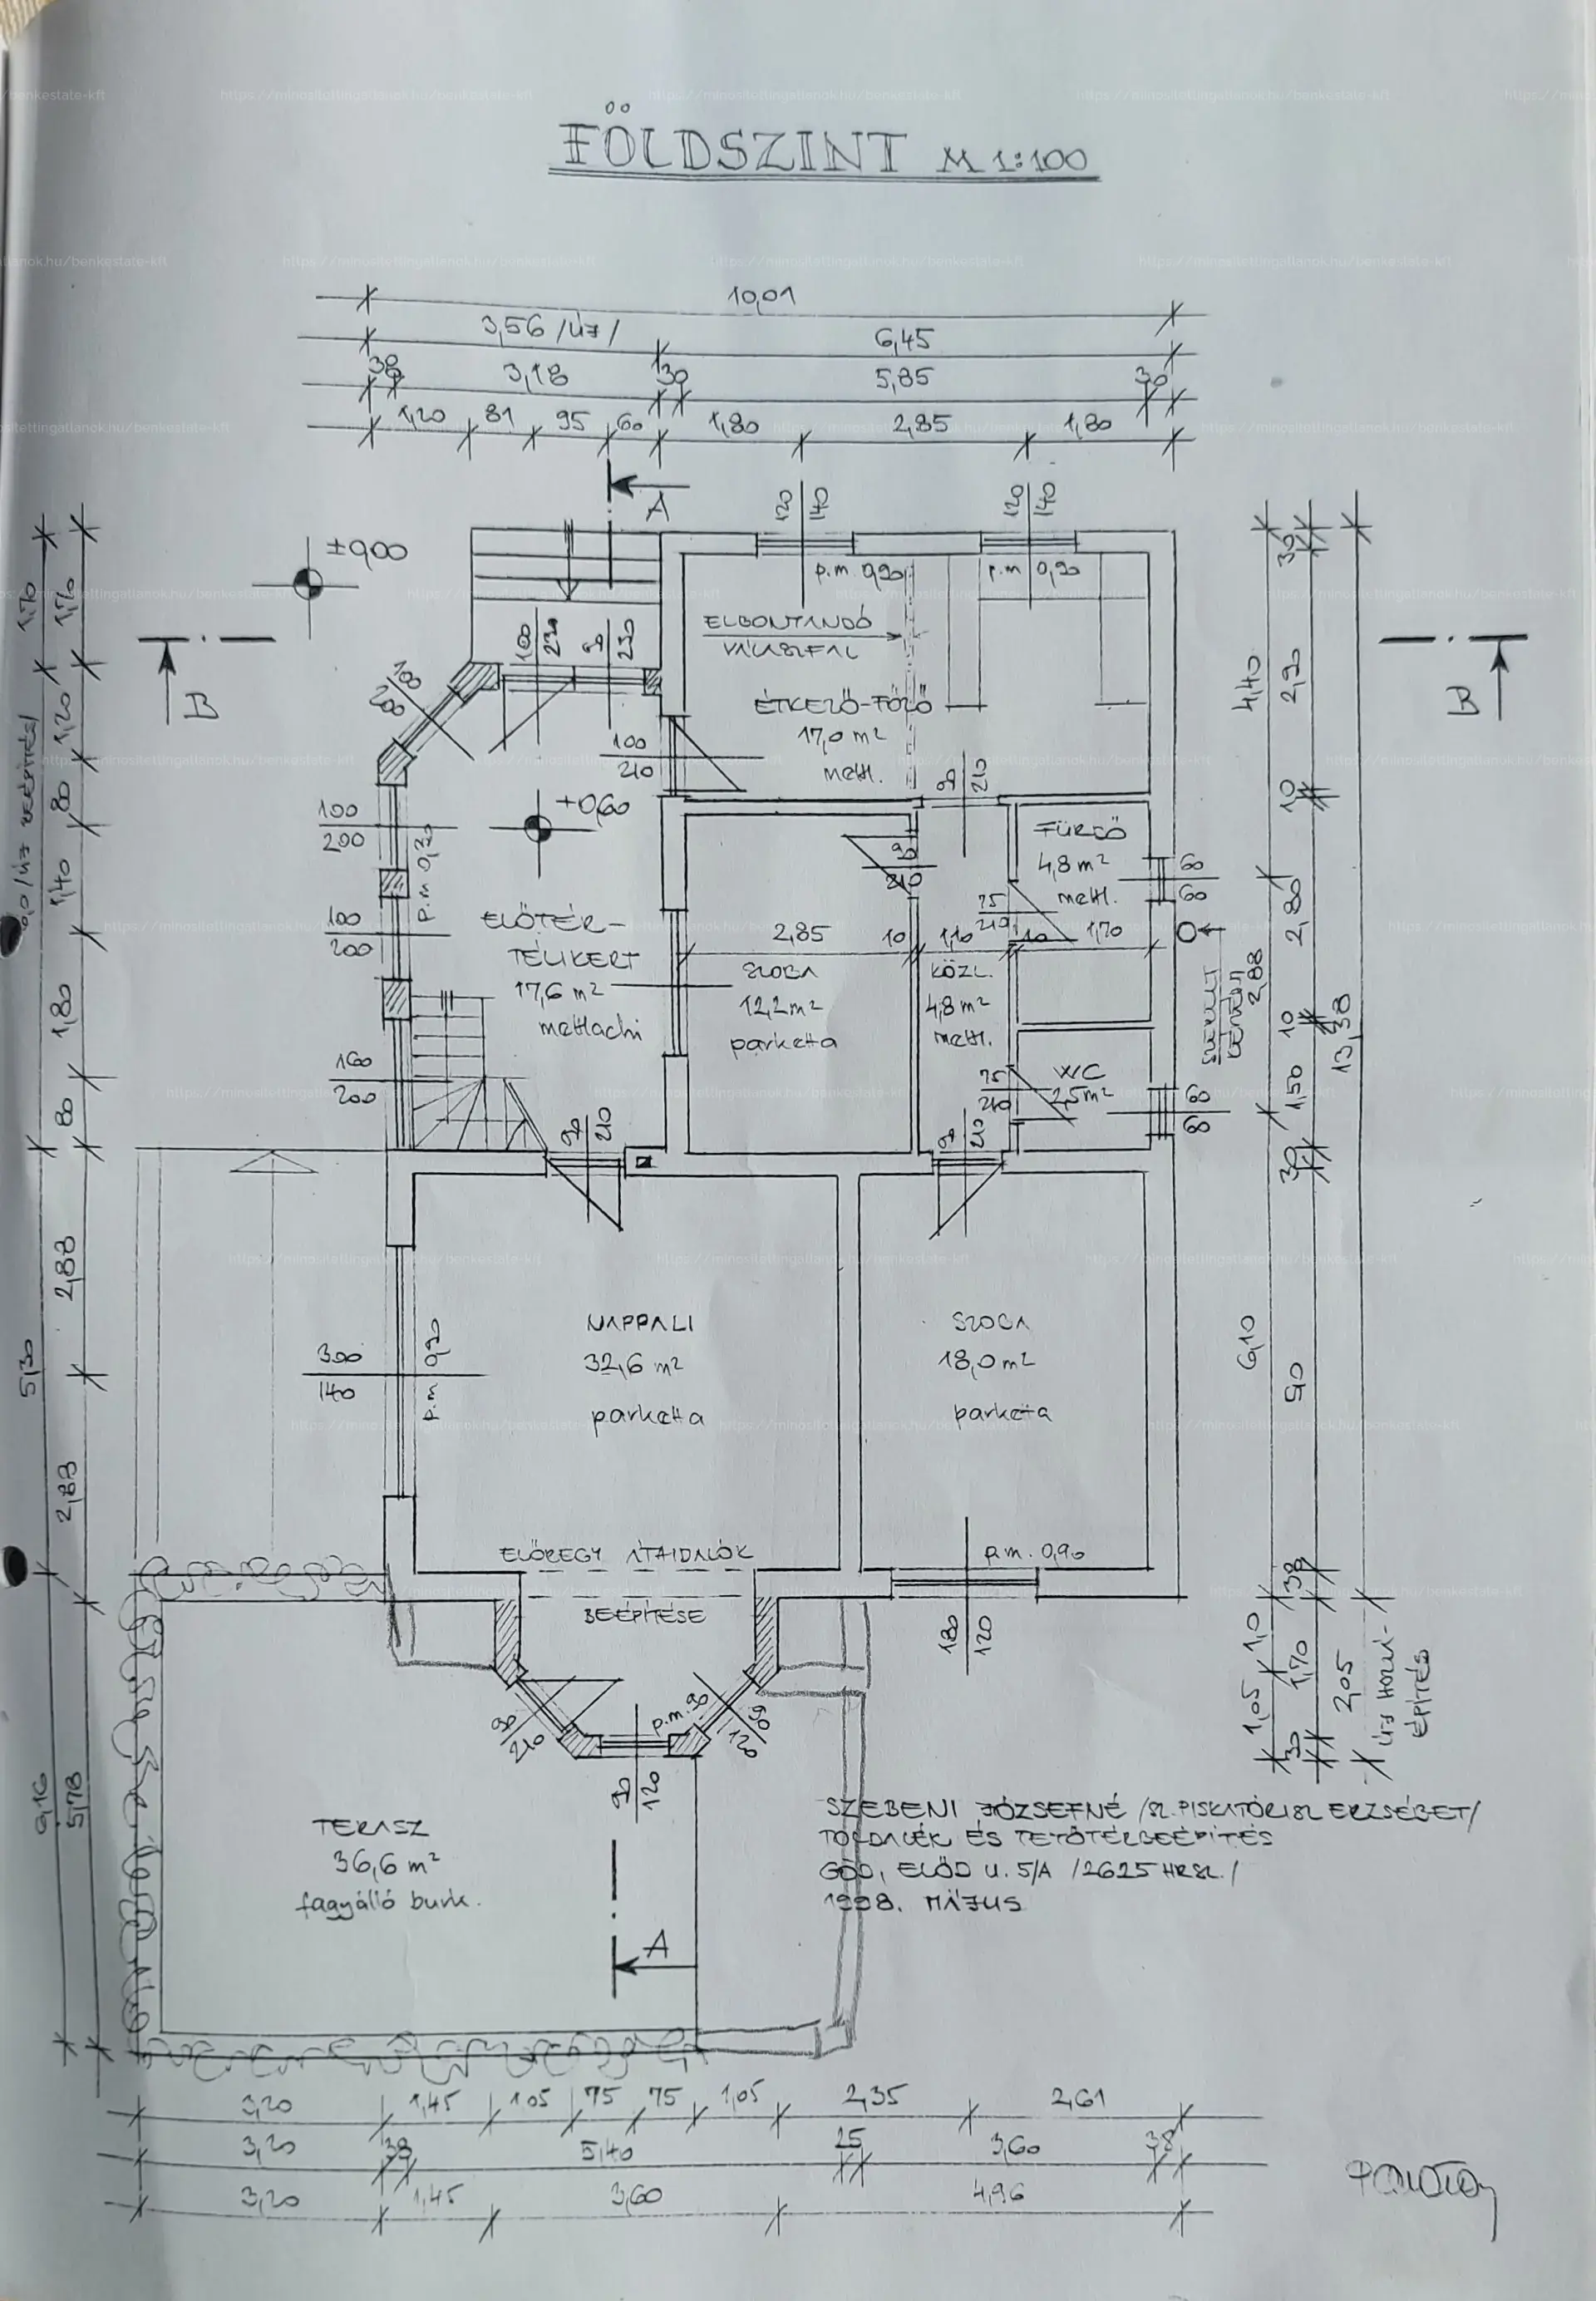 FÖLDSZINT M 1:100
10,01
3,56 /ÚJ/
6,45
38
3,18
30
5,85
30
1,20
81
95
60
1,80
2,85
1,80
A
120
140
120
140
±0,00
p.m. 0,90
p.m. 0,90
1,70
1,70
ELBONTANDÓ
VÁLASZFAL
100
230
90
230
B
B
ÉTKEZŐ-FŐZŐ
17,0 m²
mettl.
100
210
90
210
+0,60
100
200
p.m. 0,30
FÜRDŐ
4,8 m²
mettl.
60
60
90
210
75
210
100
200
ELŐTÉR-
TÉLIKERT
17,6 m²
mettlachi
2,85
10
1,10
10
1,70
SZOBA
12,2 m²
parketta
KÖZL.
4,8 m²
mettl.
SZERELT
KÉMÉNY
2,88
160
200
75
210
WC
2,5 m²
60
60
90
210
90
210
1,20
80
1,40
1,80
80
2,88
2,88
5,30
6,16
5,78
30
4,40
2,90
10
2,80
10
1,50
30
13,38
6,10
50
38
1,0
1,05
1,70
30
2,05
ÚJ HOZZÁ-
ÉPÍTÉS
300
140
p.m. 0,90
NAPPALI
32,6 m²
parketta
SZOBA
18,0 m²
parketta
ELŐREGY. ÁTHIDALÓK
BEÉPÍTÉSE
p.m. 0,90
180
120
90
210
p.m. 90
60
120
90
120
TERASZ
36,6 m²
fagyálló burk.
A
SZEBENI JÓZSEFNÉ /SZ. PISKATÓRISZ ERZSÉBET/
TOLDALÉK ÉS TETŐTÉRBEÉPÍTÉS
GÖD, ELŐD U. 5/A /2625 HRSZ./
1998. MÁJUS
3,20
1,45
1,05
75
75
1,05
2,35
2,61
3,20
38
5,40
25
3,60
38
3,20
1,45
3,60
4,96
https://minositettingatlanok.hu/benkestate-kft